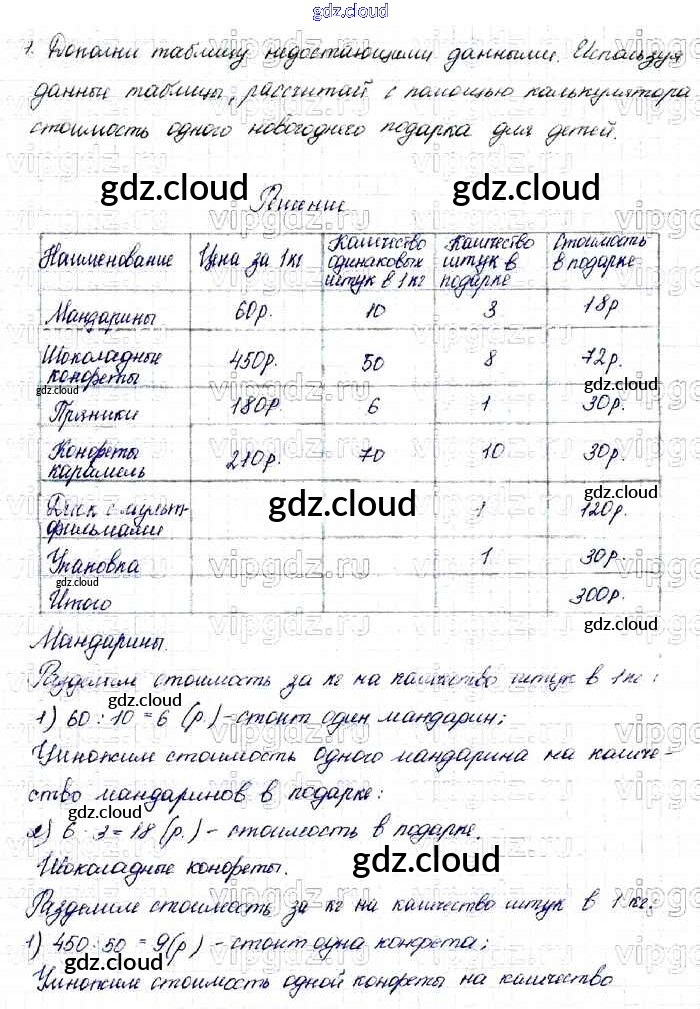 gdz.cloud
1. Дополни таблицу недостающими данными. Используя
данные таблицы, рассчитай с помощью калькулятора
стоимость одного новогоднего подарка для детей.
gdz.cloud gdz.cloud
Решение
Наименование Цена за 1 кг Количество одинаковых штук в 1 кг Количество штук в подарке Стоимость в подарке
Мандарины 60р. 10 3 18р
Шоколадные конфеты 450р. 50 8 72р.
gdz.cloud gdz.cloud
Пряники 180р. 6 1 30р.
Конфеты карамель 210р. 70 10 30р.
Диск с мультфильмами 1 120р.
gdz.cloud gdz.cloud
Упаковка 1 30р.
gdz.cloud
Итого 300р.
gdz.cloud
Мандарины.
Разделим стоимость за кг на количество штук в 1 кг:
gdz.cloud
1) 60 : 10 = 6 (р.) - стоит один мандарин;
Умножим стоимость одного мандарина на количе-
ство мандаринов в подарке:
gdz.cloud
2) 6 · 3 = 18 (р.) - стоимость в подарке.
Шоколадные конфеты.
gdz.cloud
Разделим стоимость за кг на количество штук в 1 кг.
1) 450 : 50 = 9 (р) - стоит одна конфета;
gdz.cloud
Умножим стоимость одной конфеты на количество